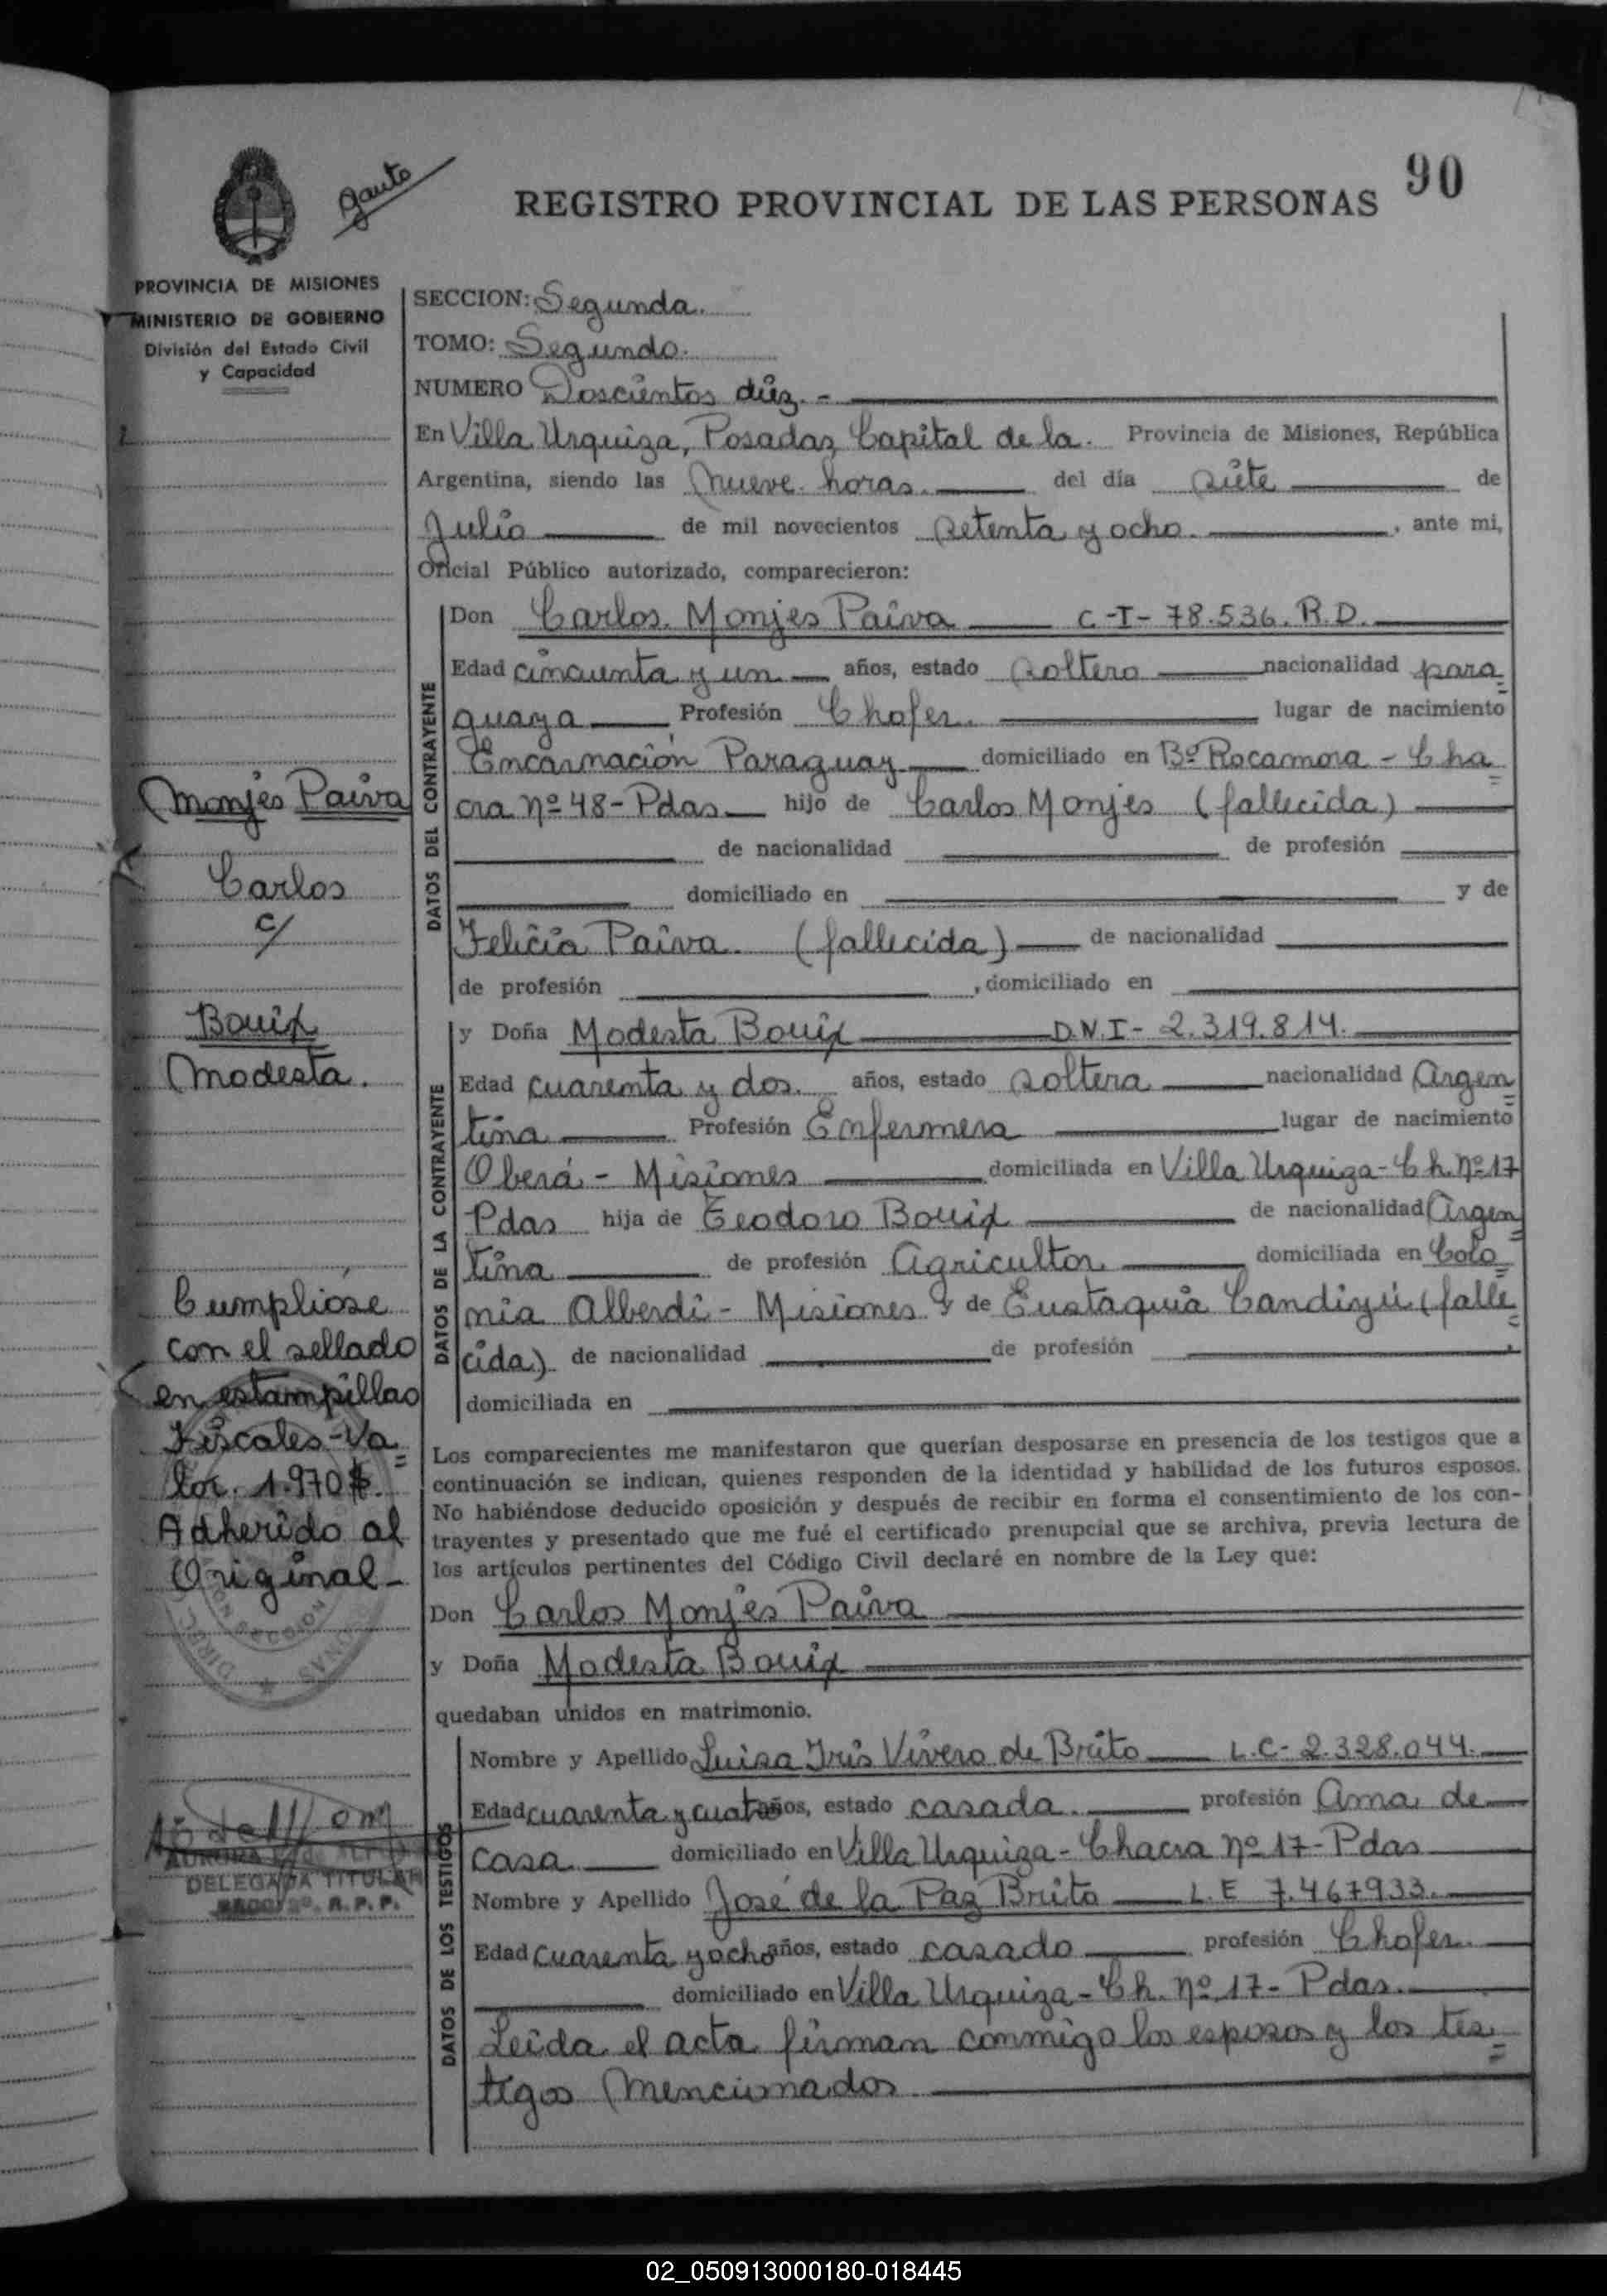 90
gauto
REGISTRO PROVINCIAL DE LAS PERSONAS
PROVINCIA DE MISIONES
MINISTERIO DE GOBIERNO
División del Estado Civil
y Capacidad
SECCION: Segunda.
TOMO: Segundo.
NUMERO Doscientos diez. -
En Villa Urquiza, Posadas, Capital de la. Provincia de Misiones, República
Argentina, siendo las nueve horas. del día siete de
Julio de mil novecientos setenta y ocho. , ante mi,
Oficial Público autorizado, comparecieron:
DATOS DEL CONTRAYENTE
Don Carlos Monjes Paiva C-I- 78.536. R.D.
Edad cincuenta y un años, estado soltero nacionalidad para=
guaya Profesión Chofer. lugar de nacimiento
Encarnación Paraguay domiciliado en Bº Rocamora - Cha=
cra nº 48- Pdas hijo de Carlos Monjes (fallecida)
de nacionalidad de profesión
domiciliado en y de
Felicia Paiva. (fallecida) de nacionalidad
de profesión , domiciliado en
Monjes Paiva
Carlos
c/
Bouix
Modesta.
DATOS DE LA CONTRAYENTE
y Doña Modesta Bouix D.N.I- 2.319.814.
Edad cuarenta y dos. años, estado soltera nacionalidad Argen=
tina Profesión Enfermera lugar de nacimiento
Oberá - Misiones domiciliada en Villa Urquiza- Ch. nº 17
Pdas hija de Teodoro Bouix de nacionalidad Argen=
tina de profesión Agricultor domiciliada en Colo=
nia Alberdi - Misiones y de Eustaquia Candiyú (falle=
cida) de nacionalidad de profesión
domiciliada en
Cumplióse
con el sellado
en estampillas
Fiscales-Va=
lor. 1.970$.
Adherido al
Original-
Los comparecientes me manifestaron que querían desposarse en presencia de los testigos que a
continuación se indican, quienes responden de la identidad y habilidad de los futuros esposos.
No habiéndose deducido oposición y después de recibir en forma el consentimiento de los con-
trayentes y presentado que me fué el certificado prenupcial que se archiva, previa lectura de
los artículos pertinentes del Código Civil declaré en nombre de la Ley que:
Don Carlos Monjes Paiva
y Doña Modesta Bouix
quedaban unidos en matrimonio.
DATOS DE LOS TESTIGOS
Nombre y Apellido Luisa Iris Vivero de Brito L.C- 2.328.044.
Edad cuarenta y cuatro años, estado casada. profesión Ama de
casa domiciliado en Villa Urquiza- Chacra nº 17- Pdas
Nombre y Apellido José de la Paz Brito L.E 7.467933.
Edad cuarenta y ocho años, estado casado profesión Chofer.
domiciliado en Villa Urquiza- Ch. nº 17- Pdas.
Leida el acta firman conmigo los esposos y los tes=
tigos mencionados
DELEGADA TITULAR
R. P. P.
02_050913000180-018445